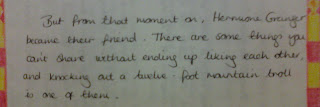 But from that moment on, Hermione Granger
became their friend. There are some things you
can't share without ending up liking each other,
and knocking out a twelve-foot mountain troll
is one of them.